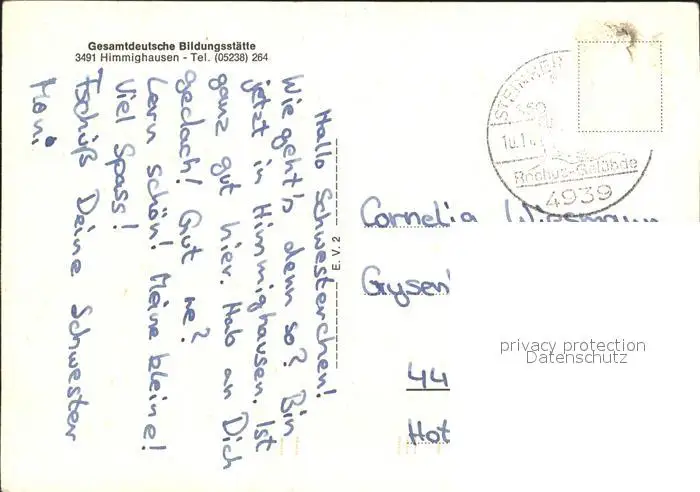 Gesamtdeutsche Bildungsstätte
3491 Himmighausen - Tel. (05238) 264
Hallo Schwesterchen!
Wie geht's denn so? Bin
jetzt in Himmighausen. Ist
ganz gut hier. Hab an Dich
gedach! Gut ne?
Lern schön! Meine kleine!
Viel Spass!
Tschüß Deine Schwester
Mani
E. V. 2
STEINHEIM
10.1
4939
Cornelia
Gysen
44
Hot
privacy protection
Datenschutz